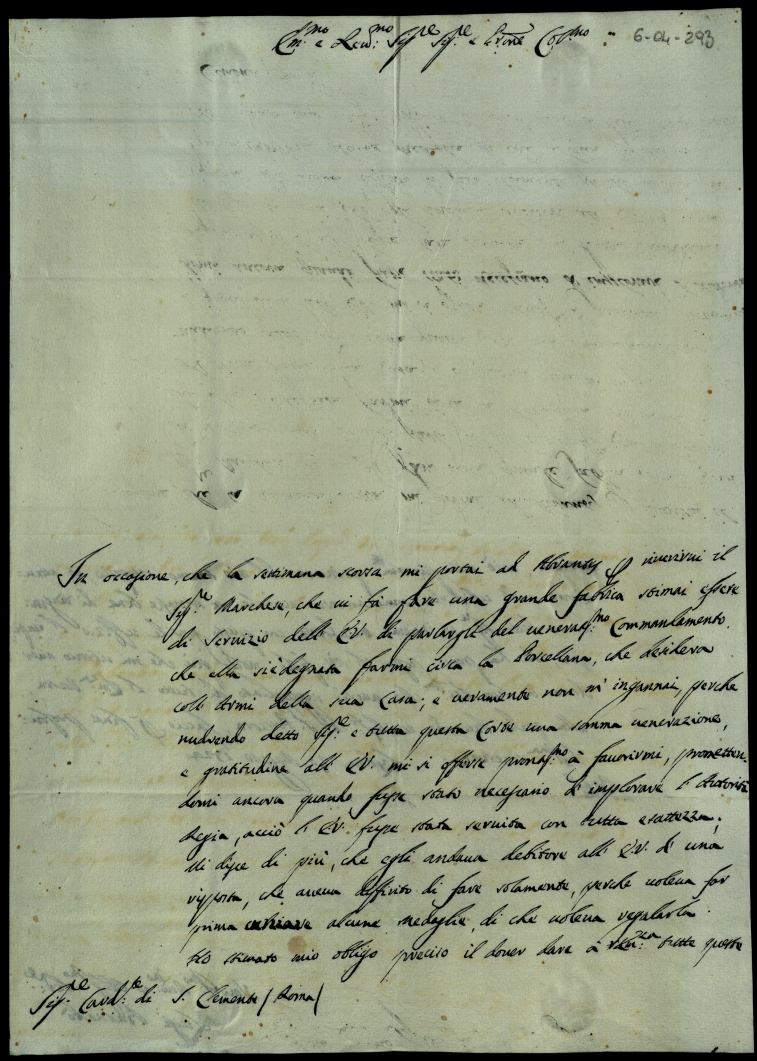 Em.mo e Rev.mo Sig.re Sig.re e P.rone Col.mo
6-04-293
In occasione, che la settimana scorsa mi portai ad riverirvi il
Sig.re Marchese, che vi fà fare una grande fabrica stimai essere
di servizio dell' E.V. di parlargli del veneratis.mo Commandamento
che ella si è degnata farmi circa la Porcellana, che desidera
coll' Armi della sua Casa; e veramente non m' ingannai, perche
nudrendo detto Sig.re e tutta questa Corte una somma venerazione,
e gratitudine all' E.V. mi si offerse prontis.mo à favorirmi, prometten-
domi ancora quando fusse stato necessario d' implorare l' Autorità
Regia, acciò l' E.V. fusse stata servita con tutta esattezza;
Mi disse di più, che egli andava debitore all' E.V. d' una
risposta, che aveva differito di fare solamente, perche voleva far
prima alcune medaglie, di che voleva regalarla.
Hò stimato mio obligo preciso il dover dare à tutte queste
Sig.re Card.le di S. Clemente / Roma /